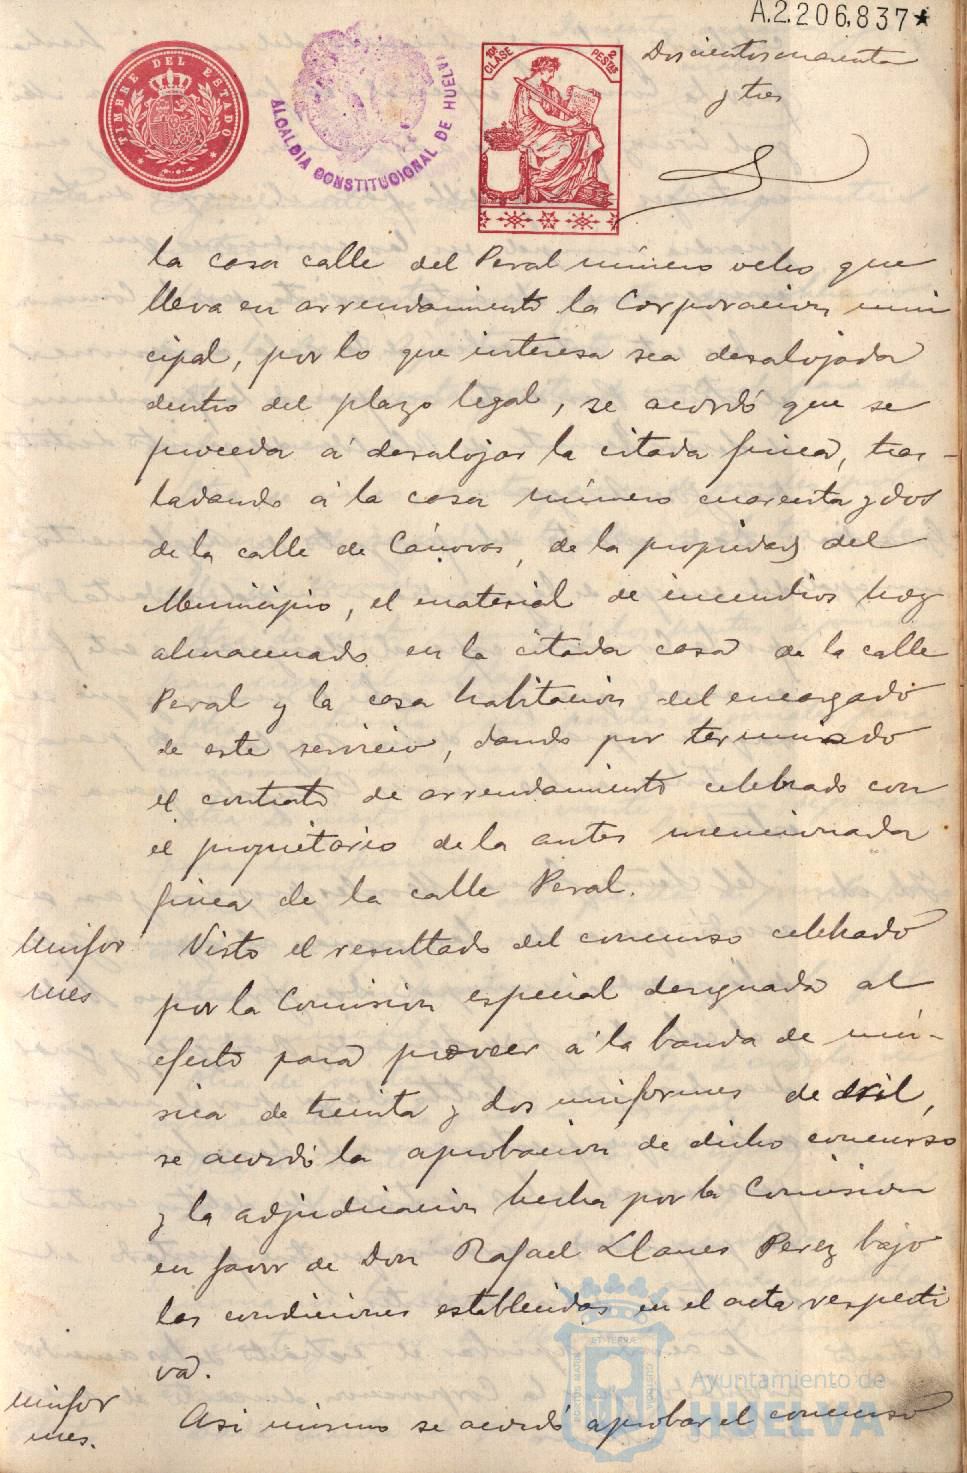 A.2.206,837★
Doscientos cuarenta
y tres
TIMBRE DEL ESTADO
ALCALDIA CONSTITUCIONAL DE HUELVA
10ª CLASE 2 PESTAS
la casa calle del Peral número ocho que
lleva en arrendamiento la Corporacion muni
cipal, por lo que interesa sea desalojada
dentro del plazo legal, se acordó que se
proceda á desalojar la citada finca, tras-
ladando á la casa número cuarenta y dos
de la calle de Cánovas, de la propiedad del
Municipio, el material de incendios hoy
almacenado en la citada casa de la calle
Peral y la casa habitacion del encargado
de este servicio, dando por terminado
el contrato de arrendamiento celebrado con
el propietario de la antes mencionada
finca de la calle Peral.
Unifor
mes
Visto el resultado del concurso celebrado
por la Comision especial designada al
efecto para proveer á la banda de mú-
sica de treinta y dos uniformes de dril,
se acordó la aprobacion de dicho concurso
y la adjudicacion hecha por la Comision
en favor de Don Rafael Llanes Perez bajo
las condiciones establecidas en el acta respecti
va.
unifor
mes.
Asi mismo se acordó aprobar el concurso
Ayuntamiento de
HUELVA